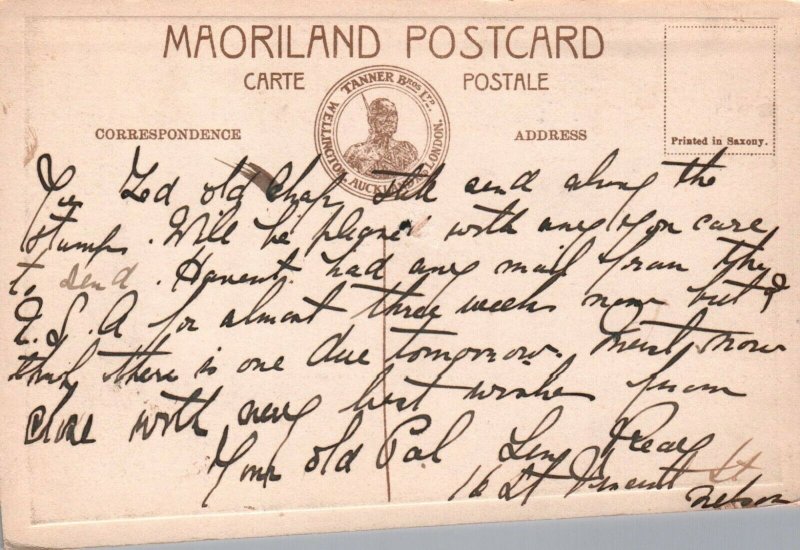 MAORILAND POSTCARD
CARTE POSTALE
TANNER BROS LTD.
WELLINGTON, AUCKLAND & LONDON.
CORRESPONDENCE
ADDRESS
Printed in Saxony.
Yes Ted old chap, send along the
stamps. Will be pleased with any you care
to send. Havent had any mail from the
U.S.A for almost three weeks now but I
think there is one due tomorrow. Must now
close with very best wishes from
Your old Pal Len
16 St Vincent St
Nelson